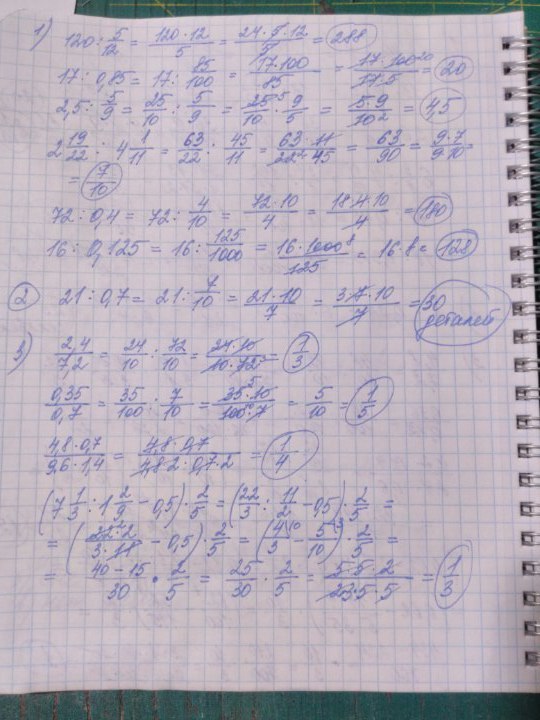 1) 120 : 5/12 = 120·12/5 = 24·5·12/5 = 288
17 : 0,85 = 17 : 85/100 = 17·100/85 = 17·100²⁰/17·5 = 20
2,5 : 5/9 = 25/10 : 5/9 = 25⁵/10 · 9/5 = 5·9/10² = 4,5
2 19/22 : 4 1/11 = 63/22 : 45/11 = 63·11/22²·45 = 63/90 = 9·7/9·10 =
= 7/10
72 : 0,4 = 72 : 4/10 = 72·10/4 = 18·4·10/4 = 180
16 : 0,125 = 16 : 125/1000 = 16·1000⁸/125 = 16·8 = 128
2 21 : 0,7 = 21 : 7/10 = 21·10/7 = 3·7·10/7 = 30 деталей
3) 2,4/7,2 = 24/10 : 72/10 = 24·10/10·72³ = 1/3
0,35/0,7 = 35/100 : 7/10 = 35⁵·10/100·7 = 5/10 = 1/5
4,8·0,7/9,6·1,4 = 4,8·0,7/4,8·2·0,7·2 = 1/4
(7 1/3 : 1 2/9 - 0,5) · 2/5 = (22/3 : 11/2 - 0,5) · 2/5 =
= (22·2/3·11 - 0,5) · 2/5 = (4/3 - 5/10) · 2/5 =
= 40-15/30 · 2/5 = 25/30 · 2/5 = 5·5·2/23·5·5 = 1/3